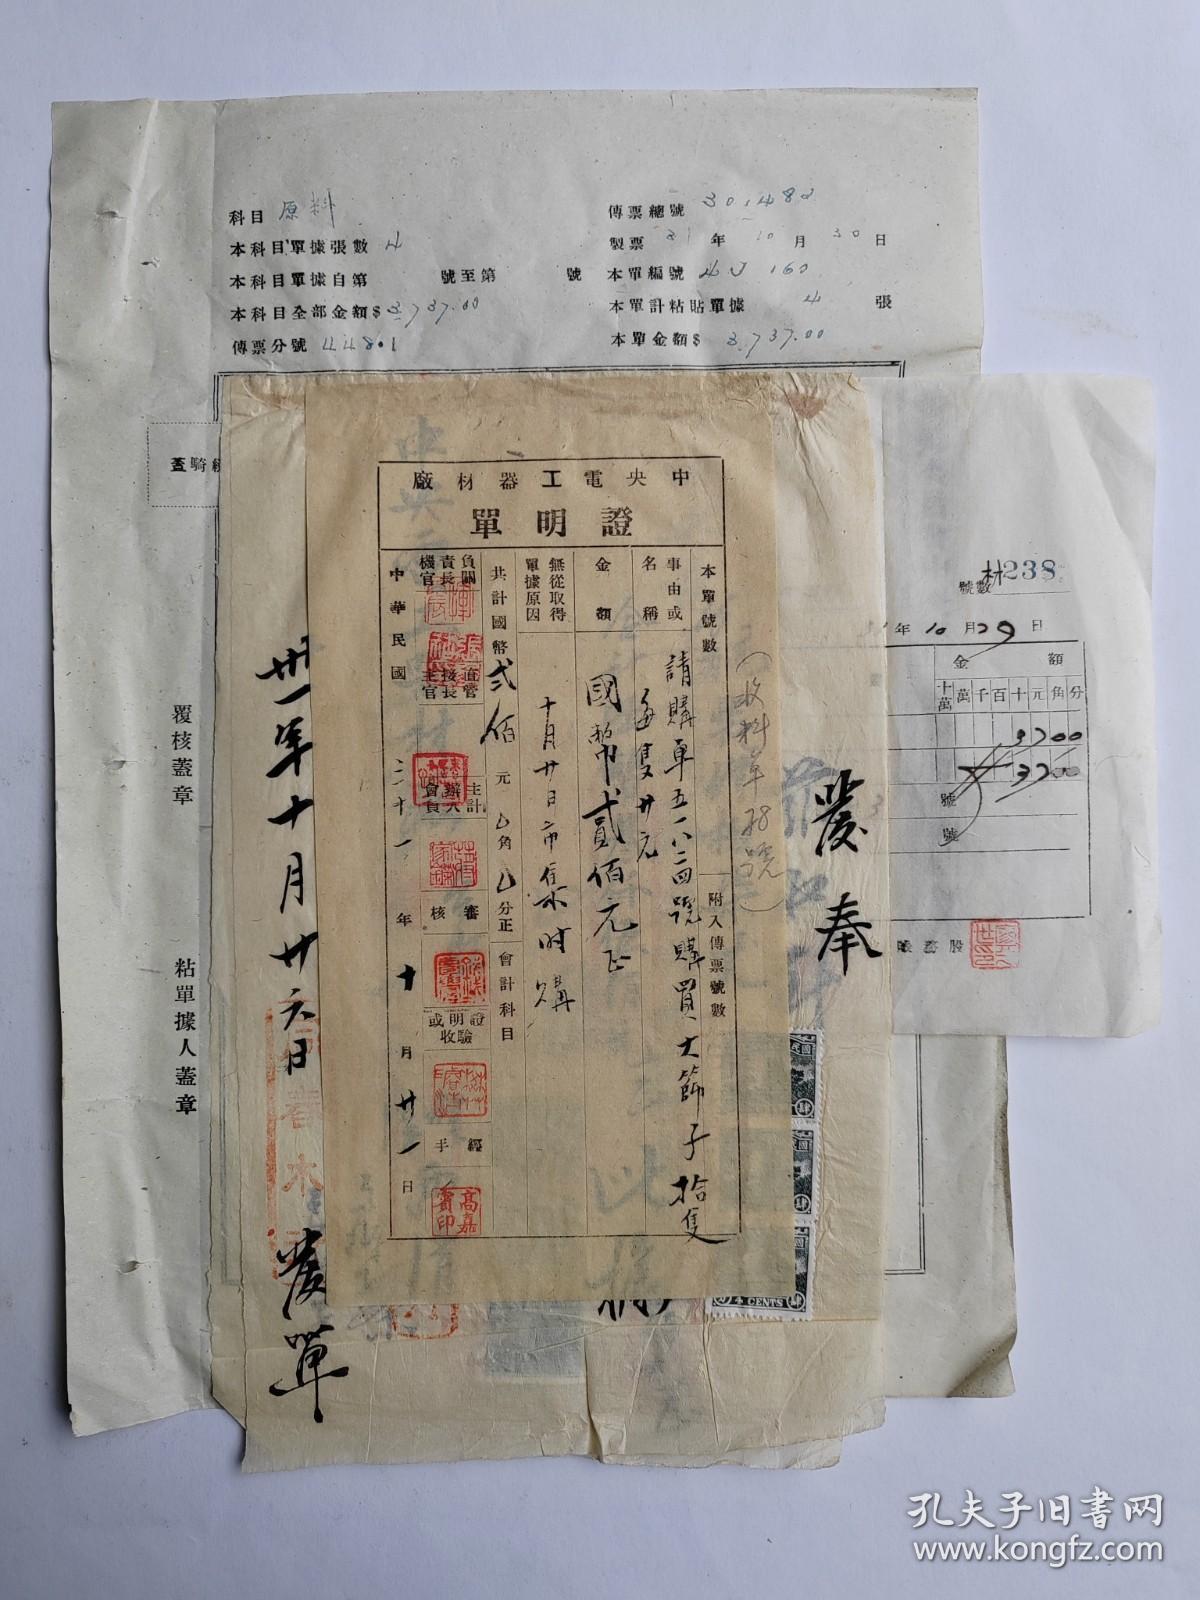 科目 原料
本科目單據張數 4
本科目單據自第 號至第 號
本科目全部金額$ 3,737.00
傳票分號 448.1
傳票總號 301482
製票 31 年 10 月 30 日
本單編號 4J 160
本單計粘貼單據 4 張
本單金額$ 3,737.00
蓋騎
覆核蓋章
粘單據人蓋章
中央電工器材廠
證明單
本單號數
附入傳票號數
(收料單 號)
事由或名稱
請購單五一八二四號購買大篩子拾隻
每隻廿元
金額
國幣貳佰元正
無從取得單據原因
十月廿日市集時購
共計國幣 貳佰 元 角 分正
會計科目
負責機關長官
直接主管長官
主辦會計人員
審核
證明或驗收
經手
高嘉
印
中華民國 三十一 年 十 月 廿一 日
卅一年十月廿六日
發單
發奉
號數 材238
31 年 10 月 29 日
金額
十萬 萬 千 百 十 元 角 分
3700
3700
號
號
股
4 CENTS
孔夫子旧书网
www.kongfz.com